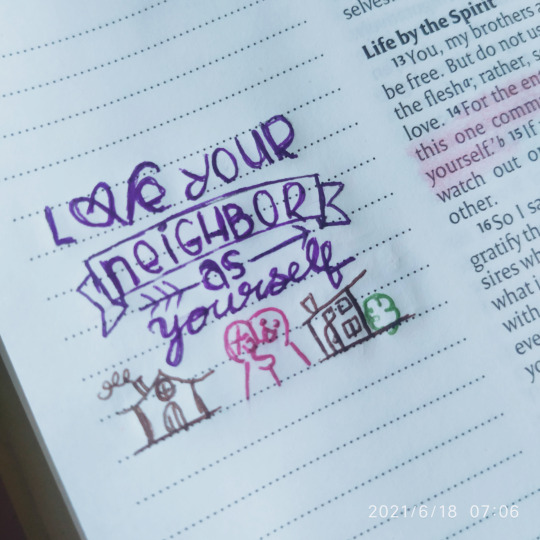 LOVE YOUR
NEIGHBOR
as
yourself
Life by the Spirit
13 You, my brothers a
be free. But do not us
the flesh a; rather, s
love. 14 For the en
this one comm
yourself.' b 15 If
watch out o
other.
16 So I sa
gratify th
sires wh
what i
with
eve
yo
2021/6/18 07:06